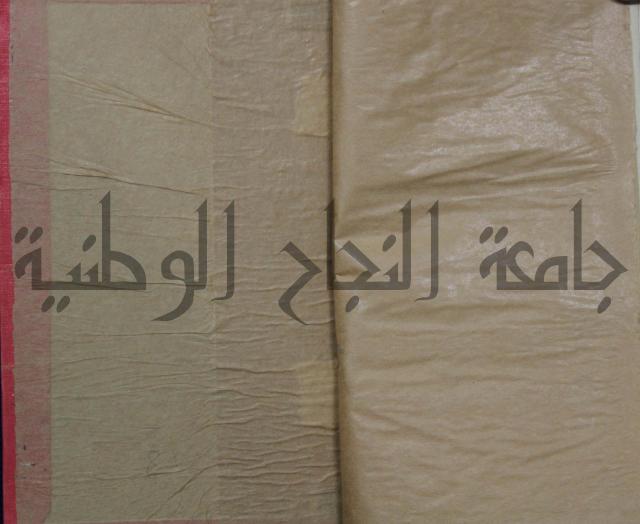 جامعة النجاح الوطنية